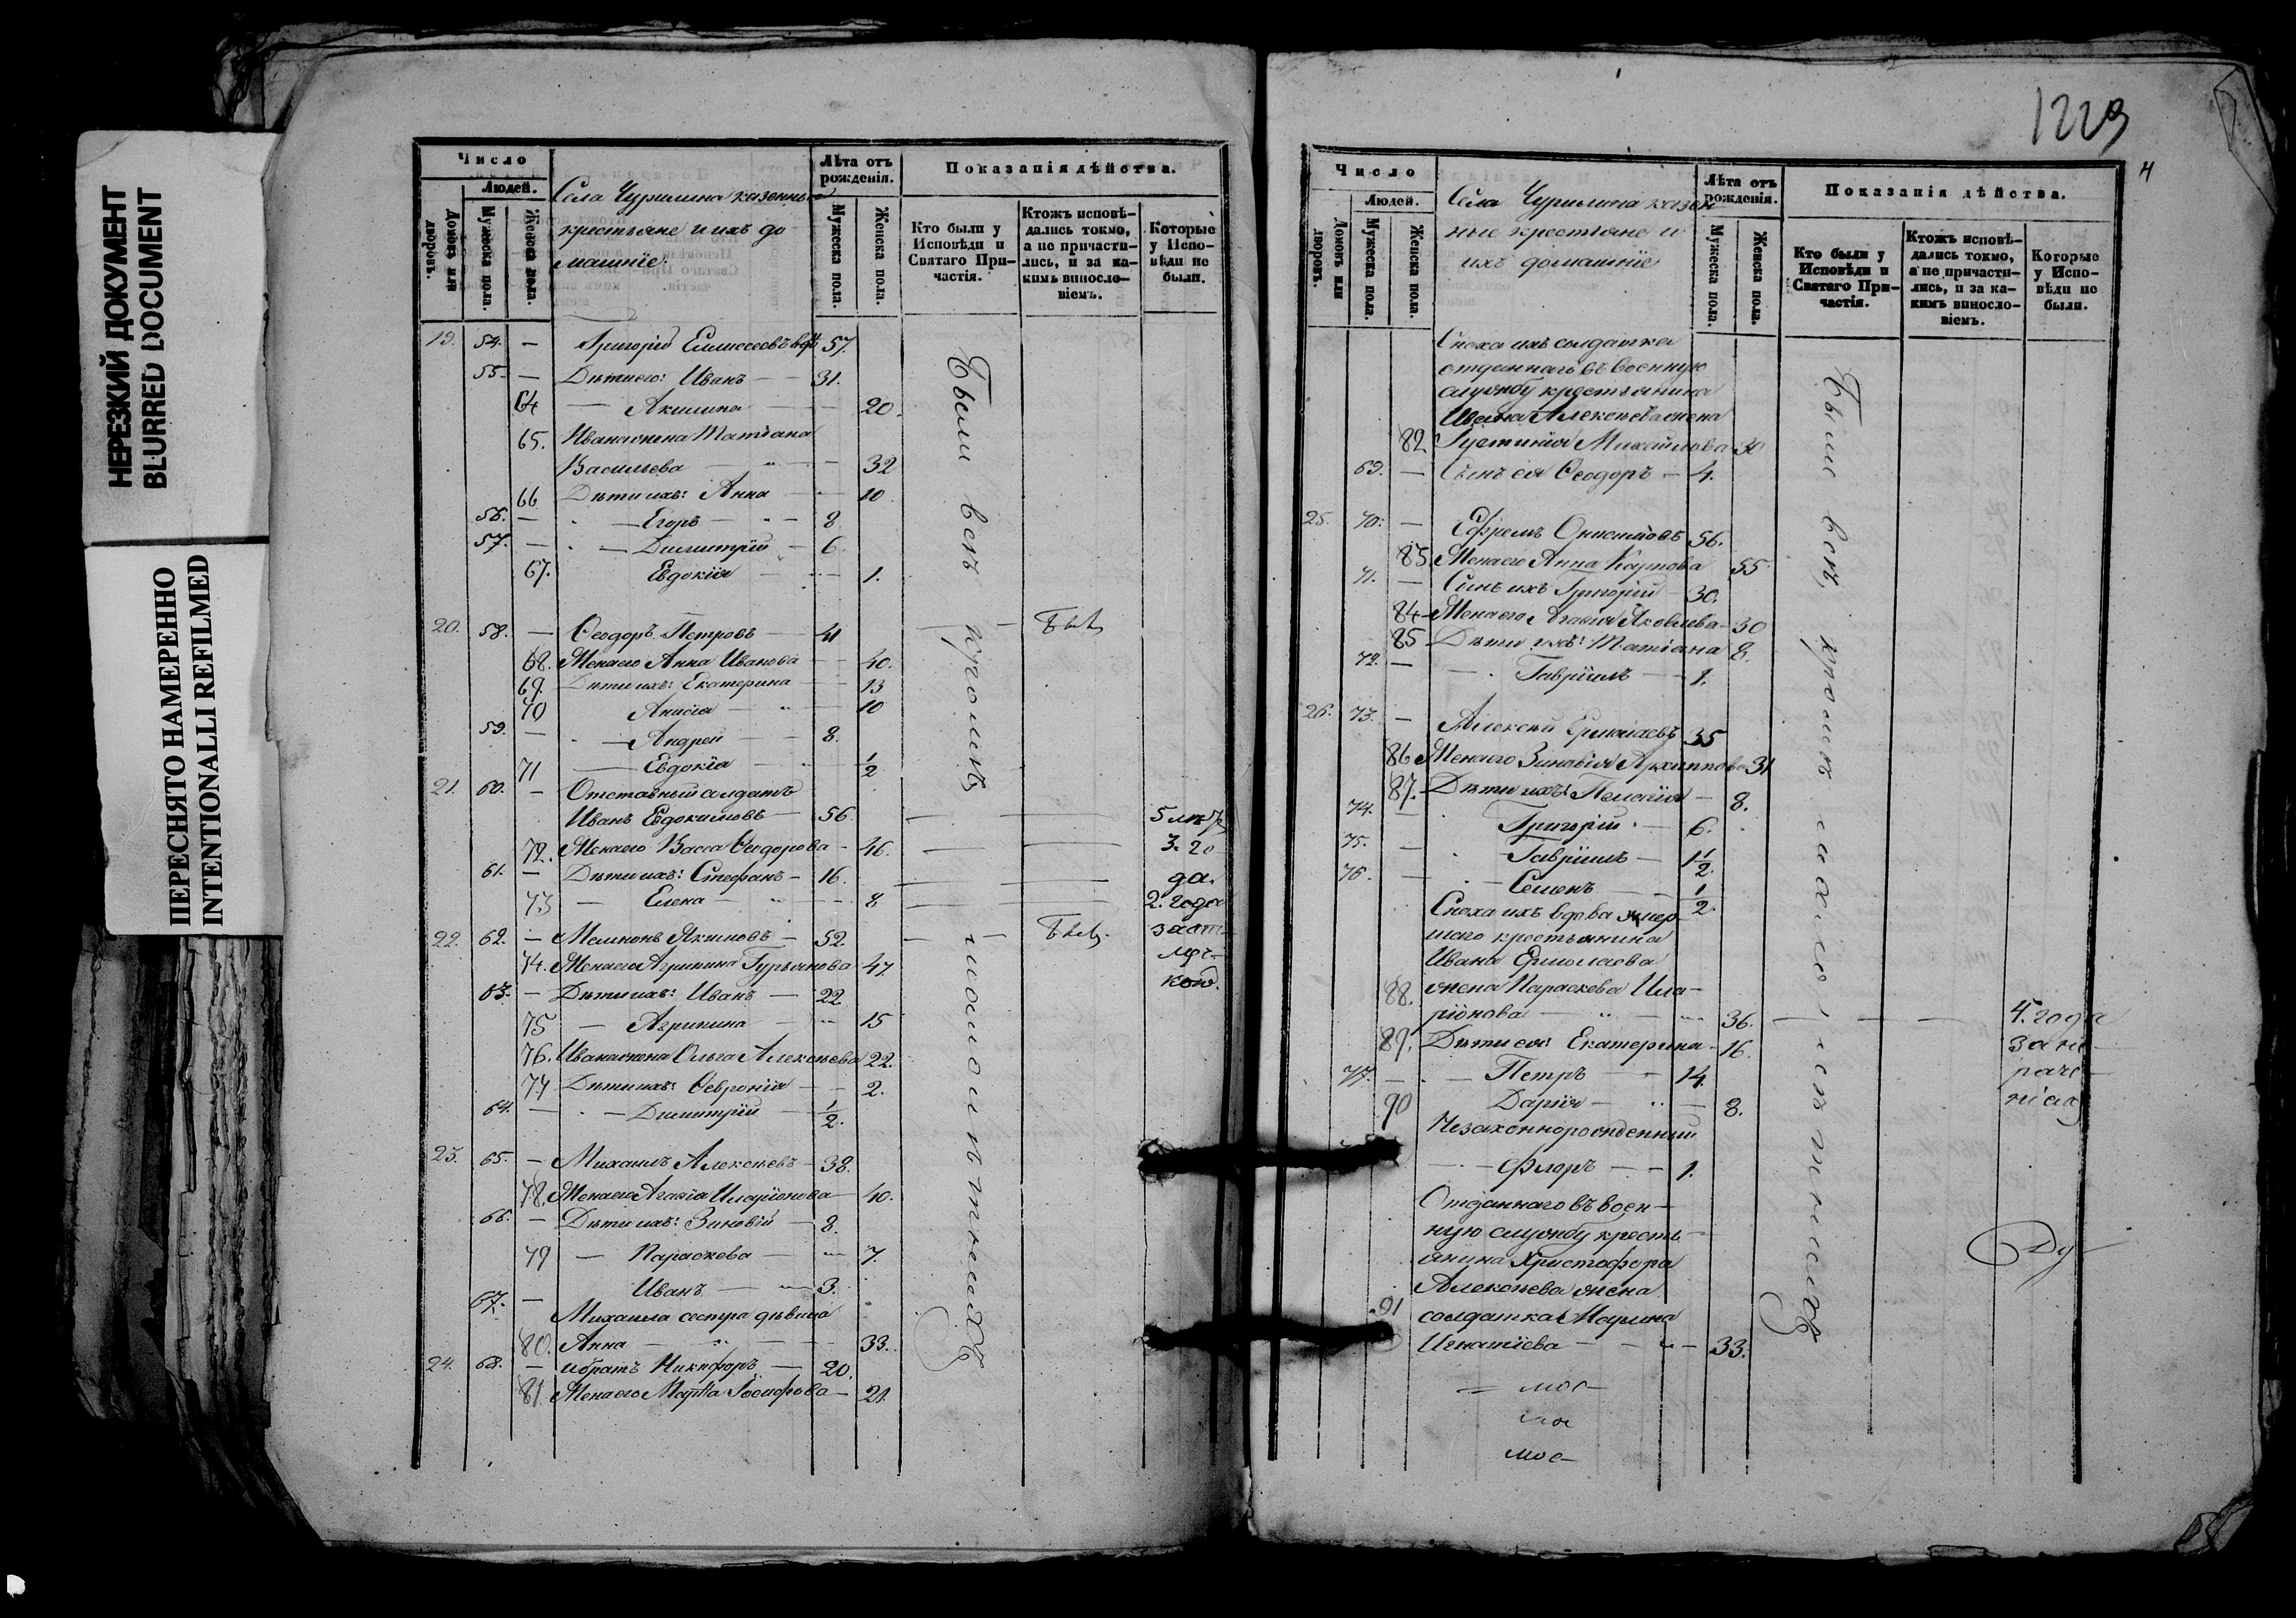 НЕРЕЗКИЙ ДОКУМЕНТ
BLURRED DOCUMENT
ПЕРЕСНЯТО НАМЕРЕННО
INTENTIONALLI REFILMED
Число
Людей.
Домовъ или дворовъ.
Мужеска пола.
Женска пола.
Села Чурилина казенные
крестьяне и ихъ до
машніе:
Лѣта отъ рожденія.
Мужеска пола.
Женска пола.
Показанія дѣйства.
Кто были у Исповѣди и Святаго Причастія.
Ктожъ исповѣдались токмо, а не причастились, и за какимъ винословіемъ.
Которые у Исповѣди не были.
19. 54. — Григорій Елисеевъ вдв 57.
55. — Дѣти его: Иванъ — 31.
64 — Акилина — 20.
65. Ивана жена Татіана
Васильева — 32
66 Дѣти ихъ: Анна — 10
56. — Егоръ — 8
57. — Димитрій — 6.
67. Евдокія — 1.
20. 58. — Ѳеодоръ Петровъ — 41
68. Жена его Анна Иванова — 40.
69. Дѣти ихъ: Екатерина — 13
70 Анисія — 10
59. — Андрей — 8.
71 — Евдокія — 1/2
21. 60. — Отставный солдатъ
Иванъ Евдокимовъ — 56
72. Жена его Васса Ѳеодорова — 46.
61. — Дѣти ихъ: Стефанъ — 16.
73 — Елена — 8
3. го
да.
2. года
22. 62. — Мемнонъ Якимовъ — 52.
74. Жена его Агрипина Гурьянова 47
63. — Дѣти ихъ: Иванъ — 22
75 — Агрипина — 15
76. Ивана жена Ольга Алексѣева 22.
77 Дѣти ихъ: Ѳевронія — 2.
64. — Димитрій — 1/2.
23. 65. — Михаилъ Алексѣевъ — 38.
78. Жена его Агафія Иларіонова — 40.
66. — Дѣти ихъ: Зиновій — 8.
79 — Параскева — 7.
67. — Иванъ — 3.
Михаила сестра дѣвица
80. Анна — 33.
24. 68. — и братъ Никифоръ — 20.
81. Жена его Марѳа — 21.
Были всѣ кромѣ малолѣтныхъ
1229
4
Число
Людей.
Домовъ или дворовъ.
Мужеска пола.
Женска пола.
Села Чурилина казен
ные крестьяне и
ихъ домашніе
Лѣта отъ рожденія.
Мужеска пола.
Женска пола.
Показанія дѣйства.
Кто были у Исповѣди и Святаго Причастія.
Ктожъ исповѣдались токмо, а не причастились, и за какимъ винословіемъ.
Которые у Исповѣди не были.
Сноха ихъ солдатка
отданнаго въ военную
службу крестьянина
Ивана Алексѣева жена
82. Іустинія Михайлова 30
69. — Сынъ ея Ѳеодоръ — 4.
25. 70. — Ефремъ Онисимовъ 56.
83. Жена его Анна Карпова 55
71. — Сынъ ихъ Григорій — 30.
84 — Жена его Агафія Яковлева — 30
85 — Дѣти ихъ: Татіана 8.
72. — Гавріилъ — 1.
26. 73. — Алексѣй Ермолаевъ 35
86 Жена его Зиновія Архиппова 31
87. Дѣти ихъ: Пелагія — 8.
74. — Григорій — 6.
75. — Гавріилъ — 1 1/2.
76. — Семенъ — 1/2.
Сноха ихъ вдова умер
шаго крестьянина
Ивана Ермолаева
88. жена Параскева Ила-
ріонова — 36. — 4. года
89. Дѣти ея: Екатерина — 16.
77. — Петръ — 14.
90 Дарія — 8.
за не
раче
ніем
Незаконнорожденный
— Флоръ — 1.
Отданнаго въ воен-
ную службу кресть-
янина Христофора
Алексѣева жена
91 солдатка Марина
Игнатіева — 33.
Были всѣ, кромѣ малолѣтныхъ